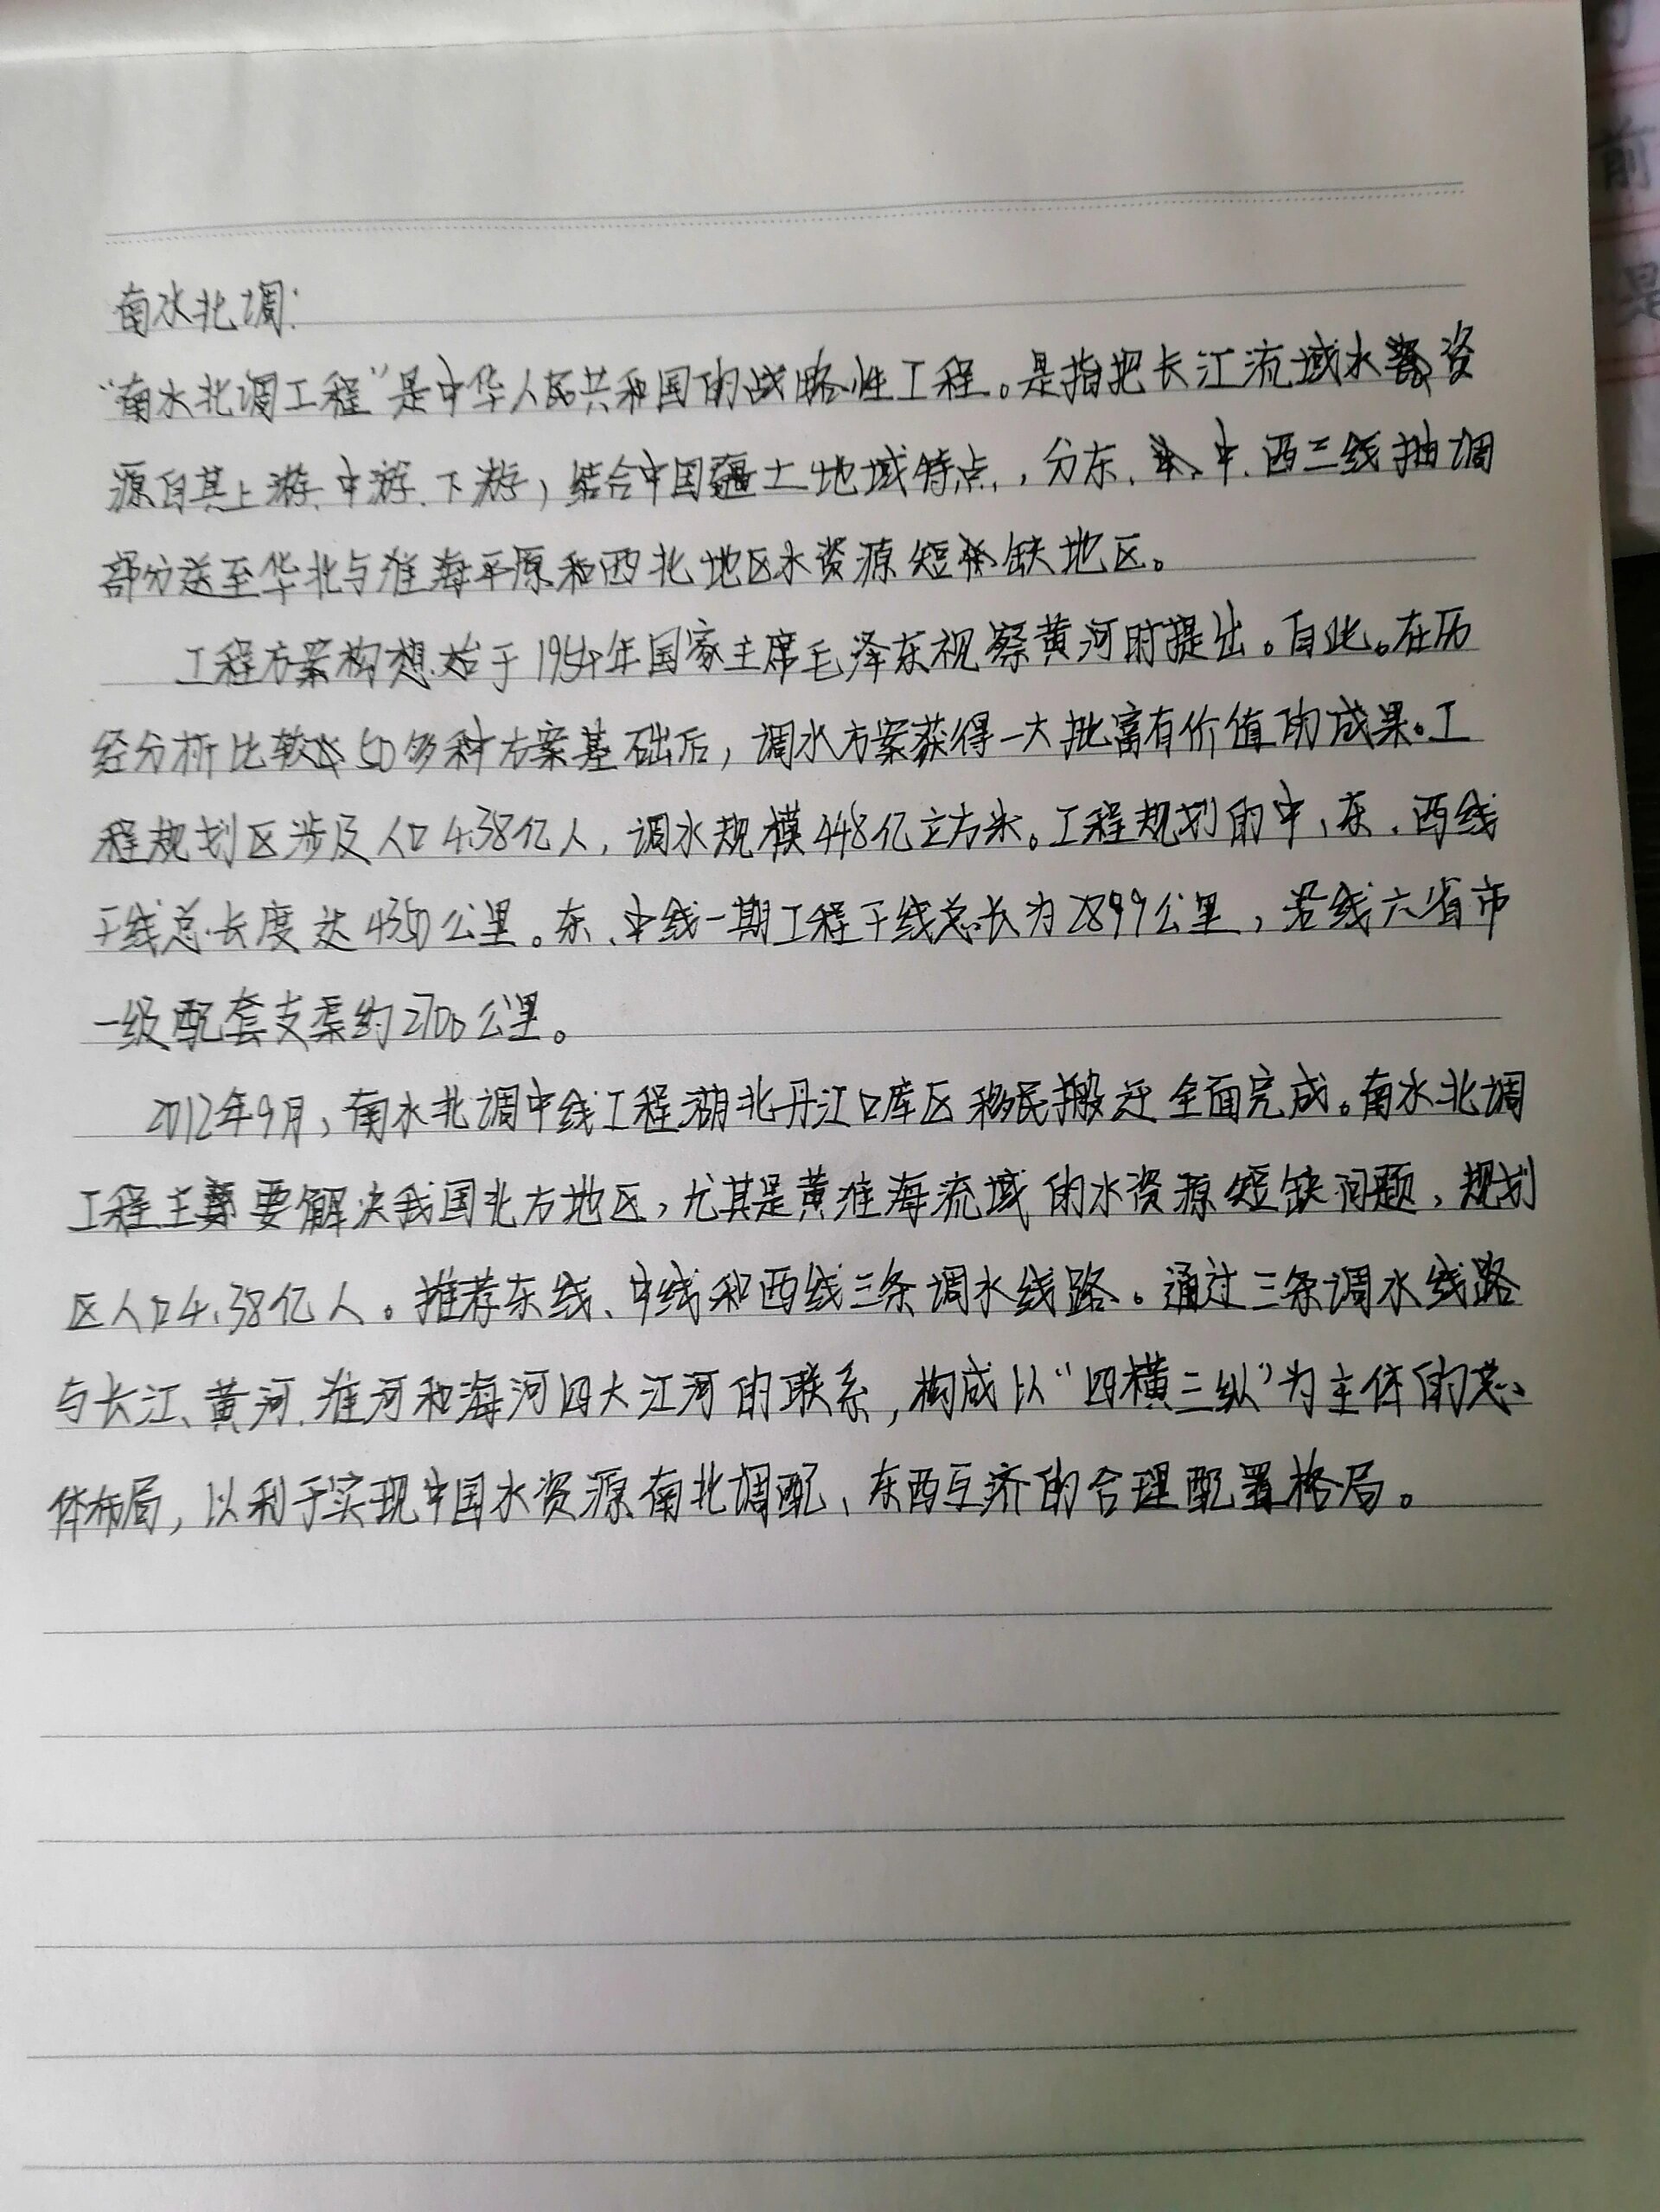 南水北调:
“南水北调工程”是中华人民共和国的战略性工程。是指把长江流域水资
源自其上游.中游.下游,结合中国疆土地域特点,分东、中、西三线抽调
部分送至华北与淮海平原和西北地区水资源短缺地区。
工程方案构想始于1954年国家主席毛泽东视察黄河时提出。自此。在历
经分析比较50多种方案基础后,调水方案获得一大批富有价值的成果。工
程规划区涉及人口4.38亿人,调水规模448亿立方米。工程规划的中、东、西线
干线总长度达4350公里。东、中线一期工程干线总长为2899公里,沿线六省市
一级配套支渠约2700公里。
2012年9月,南水北调中线工程湖北丹江口库区移民搬迁全面完成。南水北调
工程主要解决我国北方地区,尤其是黄淮海流域的水资源短缺问题,规划
区人口4.38亿人。推荐东线、中线和西线三条调水线路。通过三条调水线路
与长江、黄河.淮河和海河四大江河的联系,构成以“四横三纵”为主体的总
体布局,以利于实现中国水资源南北调配、东西互济的合理配置格局。
前
是